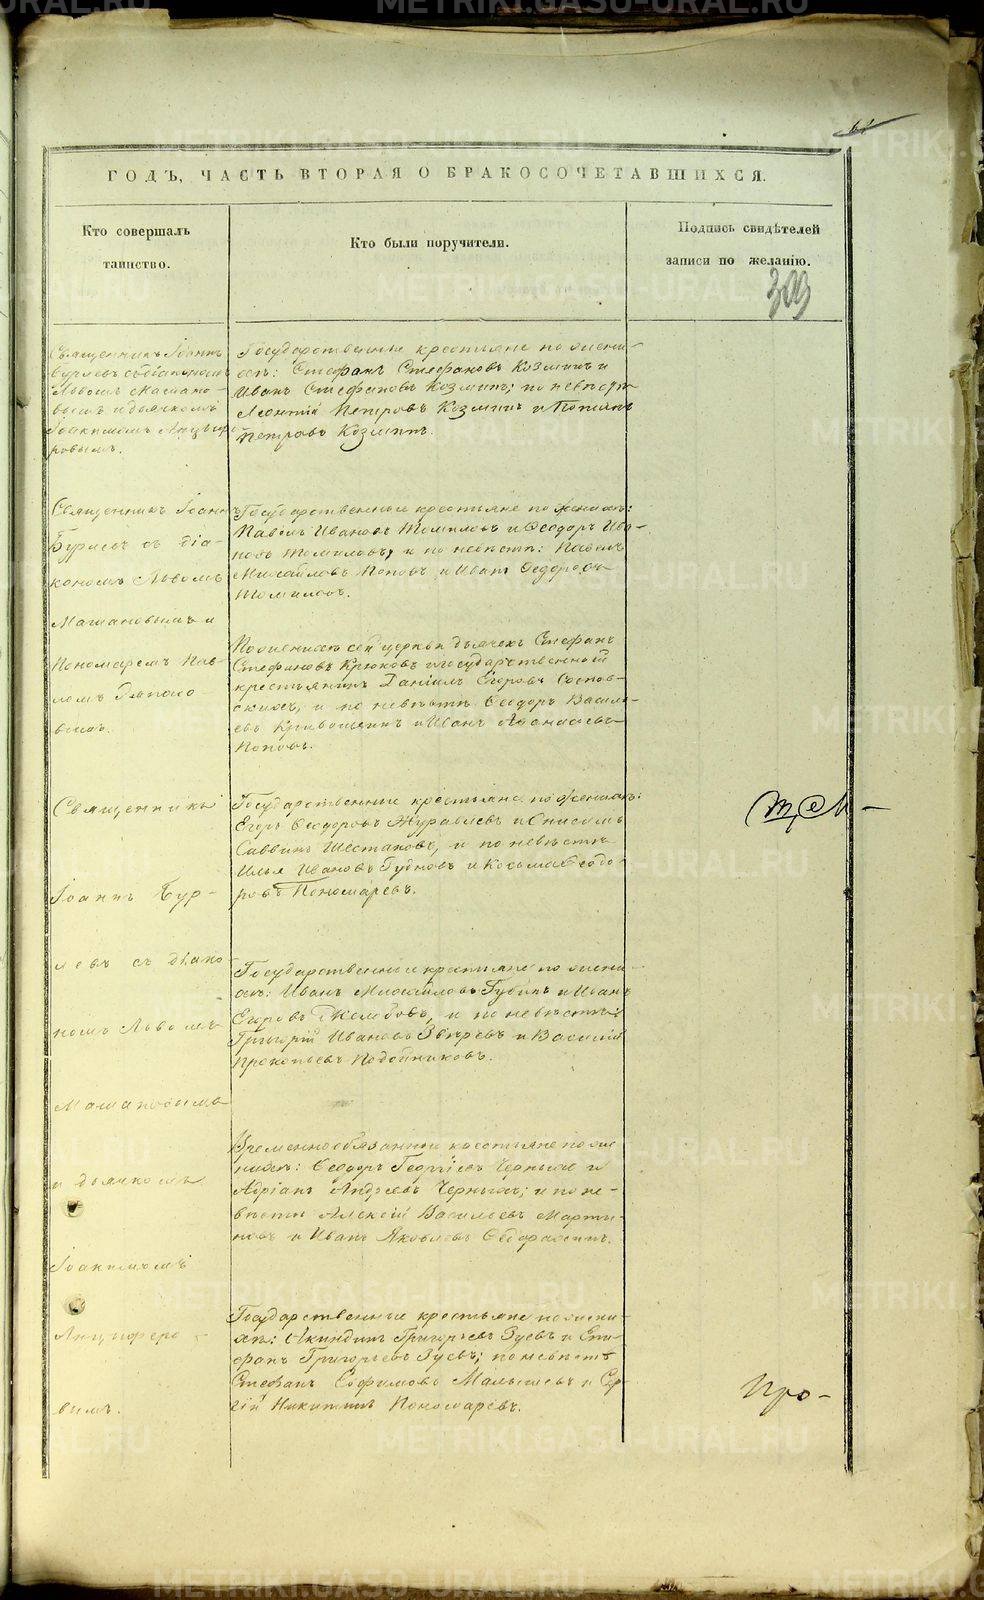 METRIKI.GASO-URAL.RU
61
ГОДЪ, ЧАСТЬ ВТОРАЯ О БРАКОСОЧЕТАВШИХСЯ.
Кто совершалъ
таинство.
Кто были поручители.
Подпись свидѣтелей
записи по желанію.
309
Священникъ Іоаннъ
Бурлевъ съ діакономъ
Львомъ
вымъ и дьячкомъ
Іоакимомъ Анциф
ровымъ.
Государственные крестьяне по жени-
хѣ: Стефанъ Стефановъ Козминъ и
Иванъ Стефановъ Козминъ; по невѣстѣ
Леонтій Петровъ Козминъ и
Петровъ Козминъ.
Священникъ Іоаннъ
Бурлевъ съ діа-
кономъ Львомъ
Машановымъ и
Пономаремъ Пав-
ломъ
вымъ.
Государственные крестьяне по женихѣ:
Павелъ Ивановъ Томиловъ и Ѳеодоръ Ива-
новъ Томиловъ, и по невѣстѣ: Павелъ
Михайловъ Поповъ и Иванъ Ѳедоровъ
Томиловъ.
сей церкви дьячекъ Стефанъ
Стефановъ Крюковъ и государственный
крестьянинъ Даніилъ Егоровъ Соснов-
скихъ, и по невѣстѣ Ѳеодоръ Василь-
евъ и Иванъ Аѳанасьевъ
Поповъ.
Священникъ
Іоаннъ Бур-
левъ съ діако-
номъ Львомъ
Машановымъ
и дьячкомъ
Іоакимомъ
Анциферо-
вымъ.
Государственные крестьяне по женихѣ:
Егоръ Ѳеодоровъ Журавлевъ и Онисимъ
Саввинъ Шестаковъ, и по невѣстѣ
Илья Ивановъ Гудковъ и Косьма Ѳеодо-
ровъ Пономаревъ.
Государственные крестьяне по жени-
хѣ: Иванъ Михайловъ Губинъ и Иванъ
Егоровъ и по невѣстѣ
Григорій Ивановъ Звѣревъ и Василій
Прокопьевъ Подойниковъ.
Временнообязанные крестьяне по же-
нихѣ: Ѳеодоръ Георгіевъ Черныхъ и
Адріанъ Андреевъ Черныхъ; и по не-
вѣстѣ Алексій Васильевъ Марты-
новъ и Иванъ Яковлевъ
Государственные крестьяне по жени-
хѣ: Акиндинъ Григорьевъ Зуевъ и Епи-
фанъ Григорьевъ Зуевъ; по невѣстѣ
Стефанъ Евфимовъ Малышевъ и Сер-
гій Никитинъ Пономаревъ.
Про-